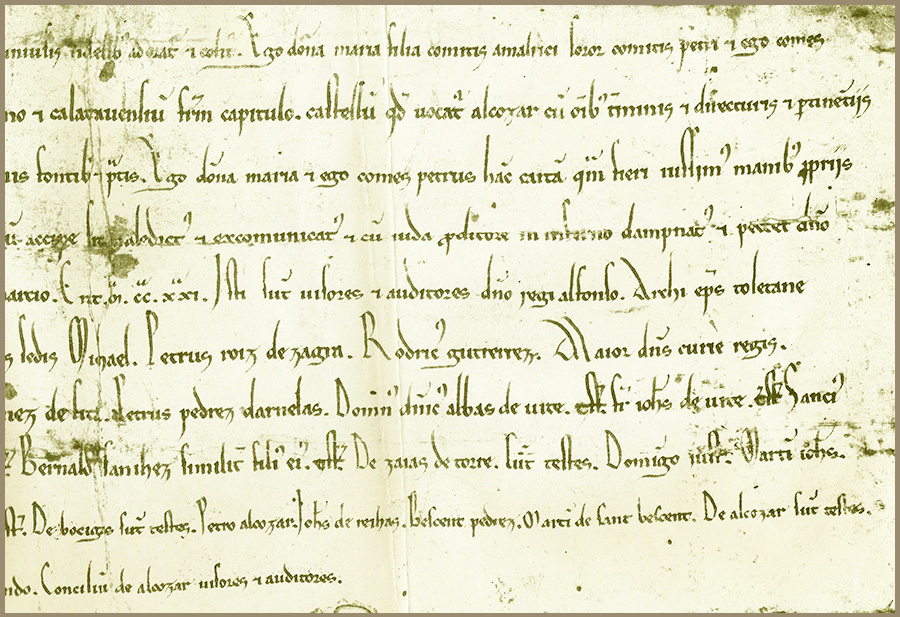 fidelibus adorat⁊ colit. Ego dōna maria filia comitis amalrici soror comitis petri ⁊ ego comes
no ⁊ calatavensiū frm capitulo. castellū qd vocat alcozar cū oib3 tminis ⁊ directuris ⁊ ptinētiis
fontib3 ⁊ ptis. Ego dōna maria ⁊ ego comes petrus hāc cartā qm fieri iussim9 manib3 ppriis
sit maledict9 ⁊ excomunicat9 ⁊ cū iuda pditore in inferno dampnat9 ⁊
cc. xxi. Isti sūt visores ⁊ auditores dno regi alfonso. Archi eps toletane
Michael. Petrus roiz de zagra. Rodric9 gutterrez. Maior dns curie regis.
Petrus pedrez darnelas. Domin9 dnic9 albas de vite. tstis fr iohs de vite. tstis Sanci9
Bernald9 sanchez similit fili9 ei9. tstis De zaias de torre. sūt testes. Domigo Marti iohs.
De bocigas sūt testes. Petro alcozar. Iohs de reihas. Bescent pedrez. Marti de sant bescent. De alcozar sūt testes.
Conciliū de alcozar visores ⁊ auditores.